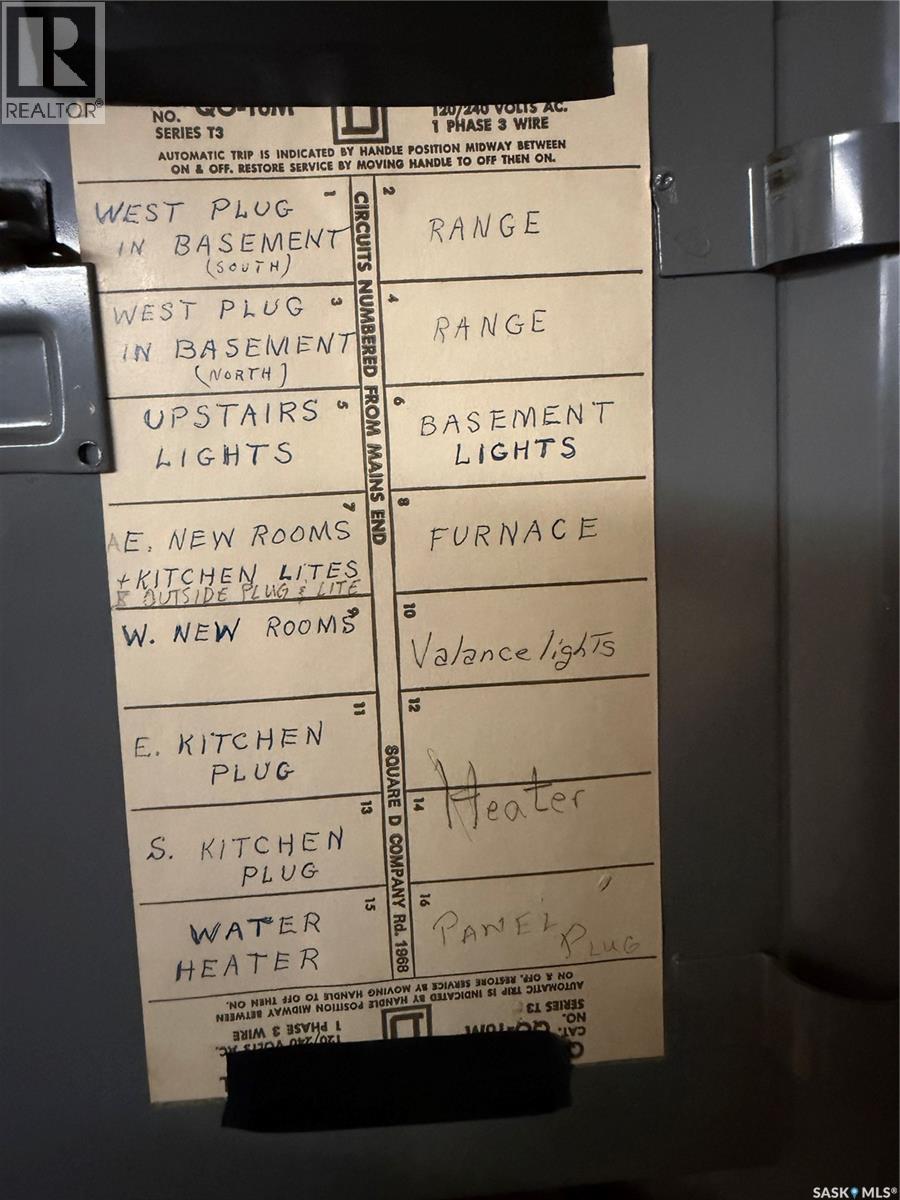 R
REALTOR®
NO. QO-16M
SERIES T3
120/240 VOLTS AC.
1 PHASE 3 WIRE
AUTOMATIC TRIP IS INDICATED BY HANDLE POSITION MIDWAY BETWEEN
ON & OFF. RESTORE SERVICE BY MOVING HANDLE TO OFF THEN ON.
CIRCUITS NUMBERED FROM MAINS END
SQUARE D COMPANY Rd. 1968
1
WEST PLUG
IN BASEMENT
(SOUTH)
2
RANGE
3
WEST PLUG
IN BASEMENT
(NORTH)
4
RANGE
5
UPSTAIRS
LIGHTS
6
BASEMENT
LIGHTS
7
E. NEW ROOMS
+KITCHEN LITES
& OUTSIDE PLUG & LITE
8
FURNACE
9
W. NEW ROOMS
10
Valance lights
11
E. KITCHEN
PLUG
12
13
S. KITCHEN
PLUG
14
Heater
15
WATER
HEATER
16
PANEL PLUG
AUTOMATIC TRIP IS INDICATED BY HANDLE POSITION MIDWAY BETWEEN
ON & OFF. RESTORE SERVICE BY MOVING HANDLE TO OFF THEN ON.
CAT.
NO. QO-16M
SERIES T3
120/240 VOLTS AC.
1 PHASE 3 WIRE
SASK MLS®